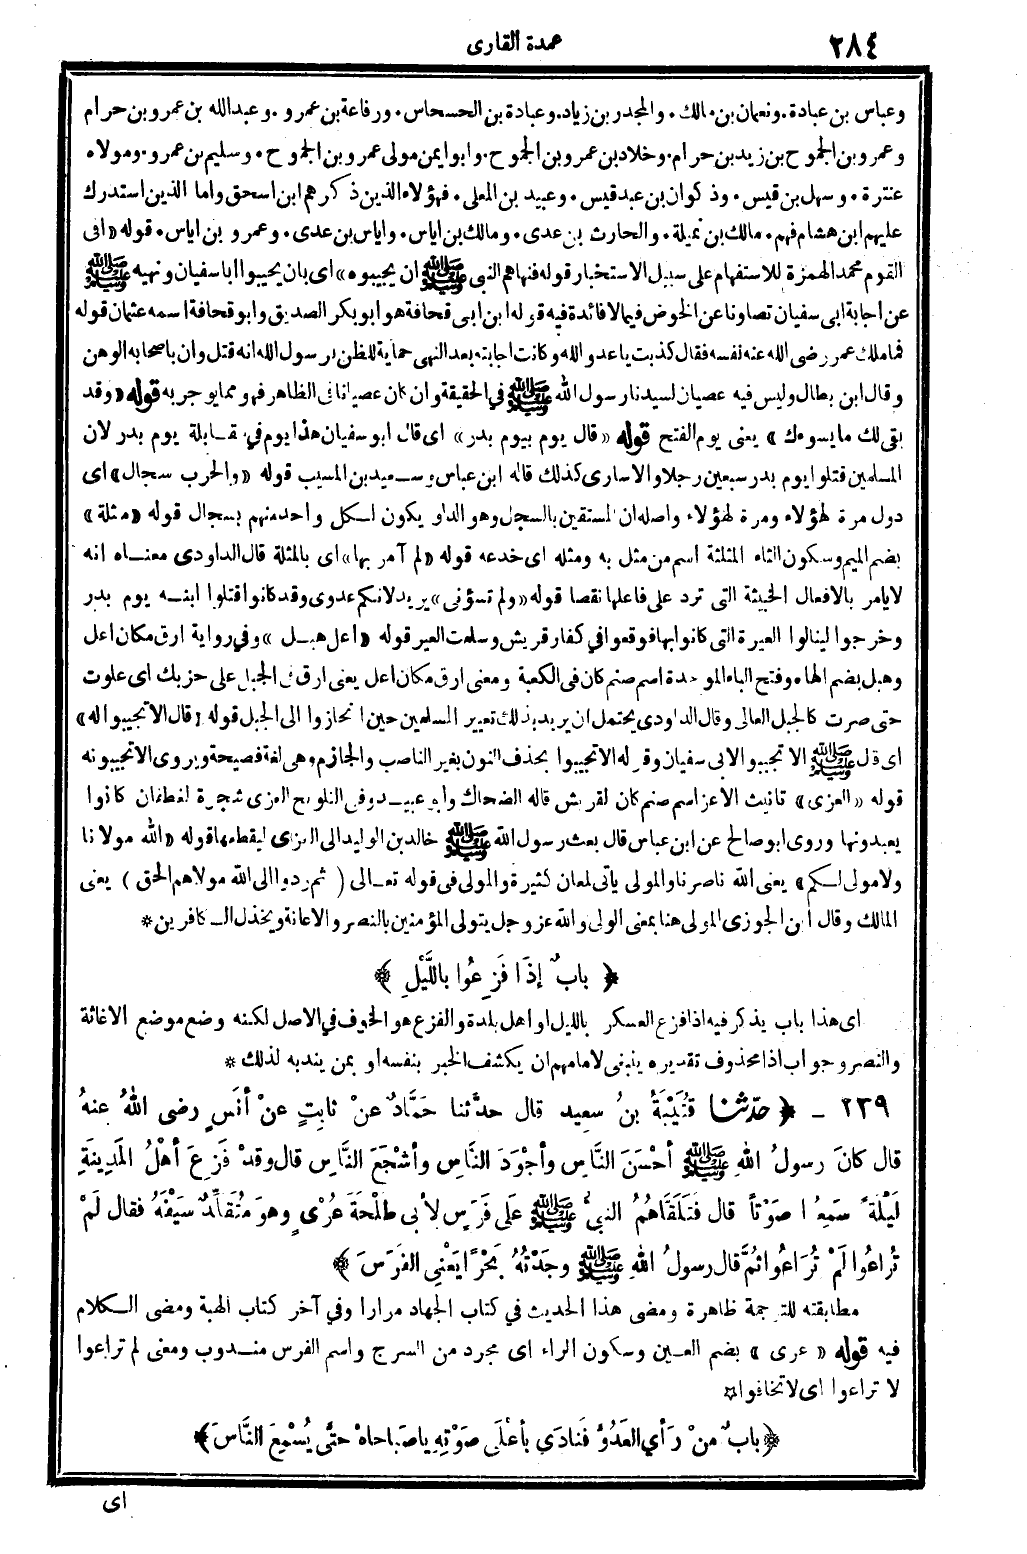 ٢٨٤
عمدة القارى
وعباس بن عبادة. ونعمان بن مالك. والمجدر بن زياد. وعبادة بن الحسحاس. ورفاعة بن عمرو. وعبدالله بن عمرو بن حرام
وعمرو بن الجموح بن زيد بن حرام. وخلاد بن عمرو بن الجموح. وابو ايمن مولى عمرو بن الجموح. وسليم بن عمرو. ومولاه
عنترة. وسهل بن قيس. وذكوان بن عبدقيس. وعبيد بن المعلى. فهؤلاء الذين ذكرهم ابن اسحق واما الذين استدرك
عليهم ابن هشام فهم. مالك بن نميلة. والحارث بن عدى. ومالك بن اياس. واياس بن عدى. وعمرو بن اياس. قوله «افى
القوم محمد الهمزة للاستفهام على سبيل الاستخبار قوله فنهاهم النبى ﷺ ان يجيبوه» اى بان يجيبوا اباسفيان ونهيه ﷺ
عن اجابة ابى سفيان تصاونا عن الخوض فيما لا فائدة فيه قوله ابن ابى قحافة هو ابو بكر الصديق وابو قحافة اسمه عثمان قوله
فما ملك عمر رضى الله عنه نفسه فقال كذبت ياعدو الله وكانت اجابته بعد النهى حماية للظن برسول الله انه قتل وان باصحابه الوهن
وقال ابن بطال وليس فيه عصيان لسيدنا رسول الله ﷺ في الحقيقة وان كان عصيانا فى الظاهر فهو مما يوجر به قوله «وقد
بقى لك ما يسوءك» يعنى يوم الفتح قوله «قال يوم بيوم بدر» اى قال ابو سفيان هذا يوم في مقابلة يوم بدر لان
المسلمين قتلوا يوم بدر سبعين رجلا والاسارى كذلك قاله ابن عباس وسعيد بن المسيب قوله «والحرب سجال» اى
دول مرة لهؤلاء ومرة لهؤلاء واصله ان المستقين بالسجل وهو الدلو يكون لكل واحد منهم بسجال قوله «مثلة»
بضم الميم وسكون الثاء المثلثة اسم من مثل به ومثله اى خدعه قوله «لم آمر بها» اى بالمثلة قال الداودى معناه انه
لايامر بالافعال الخبيثة التى ترد على فاعلها نقصا قوله «ولم تسؤنى» يريد لانكم عدوى وقد كانوا قتلوا ابنه يوم بدر
وخرجوا لينالوا العيرة التى كانوا بها فوقعوا في كفار قريش وسلمت العير قوله «اعل هبل» وفي رواية ارق مكان اعل
وهبل بضم الهاء وفتح الباء الموحدة اسم صنم كان فى الكعبة ومعنى ارق مكان اعل يعنى ارق فى الجبل على حزبك اى علوت
حتى صرت كالجبل العالى وقال الداودى يحتمل ان يريد بذلك تعيير المسلمين حين انحازوا الى الجبل قوله «قال الا تجيبوا له»
اى قال ﷺ الا تجيبوا لابى سفيان وقوله الا تجيبوا بحذف النون بغير الناصب والجازم وهى لغة فصيحة ويروى الا تجيبونه
قوله «العزى» تانيث الاعز اسم صنم كان لقريش قاله الضحاك وابو عبيد وفى التلويح العزى شجرة لغطفان كانوا
يعبدونها وروى ابو صالح عن ابن عباس قال بعث رسول الله ﷺ خالد بن الوليد الى العزى ليقطعها قوله «الله مولانا
ولا مولى لكم» يعنى الله ناصرنا والمولى ياتى لمعان كثيرة والمولى فى قوله تعالى (ثم ردوا الى الله مولاهم الحق) يعنى
المالك وقال ابن الجوزى المولى هنا بمعنى الولى والله عز وجل يتولى المؤمنين بالنصر والاعانة ويخذل الكافرين *
﴿ بابٌ إذَا فَزِعُوا باللَّيْلِ ﴾
اى هذا باب يذكر فيه اذا فزع العسكر بالليل او اهل بلدة والفزع هو الخوف في الاصل لكنه وضع موضع الاغاثة
والنصر وجواب اذا محذوف تقديره ينبغى لامامهم ان يكشف الخبر بنفسه او بمن يندبه لذلك *
٢٣٩ ـ ﴿ حدّثنا قُتَيْبَةُ بنُ سعيد قال حدّثنا حَمَّادٌ عنْ ثابِتٍ عنْ أنَسٍ رضى اللهُ عنهُ
قال كانَ رسولُ اللهِ ﷺ أحْسَنَ النَّاسِ وأجْوَدَ النَّاسِ وأشْجَعَ النَّاسِ قال وقدْ فَزِعَ أهْلُ المَدِينَةِ
لَيْلَةً سَمِعُوا صَوْتاً قال فَتَلَقَّاهُمُ النبىُّ ﷺ عَلَى فَرَسٍ لأبى طَلْحَةَ عُرْىٍ وهوَ مُتَقَلِّدٌ سَيْفَهُ فقال لَمْ
تُراعُوا لَمْ تُرَاعُوا ثُمَّ قال رسولُ اللهِ ﷺ وجَدْتُهُ بَحْرًا يَعْنِى الفَرَسَ ﴾
مطابقته للترجمة ظاهرة ومضى هذا الحديث في كتاب الجهاد مرارا وفي آخر كتاب الهبة ومضى الكلام
فيه قوله «عرى» بضم العين وسكون الراء اى مجرد من السرج واسم الفرس مندوب ومعنى لم تراعوا
لا تراعوا اى لا تخافوا *
﴿ بابُ منْ رَأى العَدُوَّ فَنادَى بأعْلَى صَوْتِهِ ياصَباحاهْ حتَّى يُسْمِعَ النَّاسَ ﴾
اى